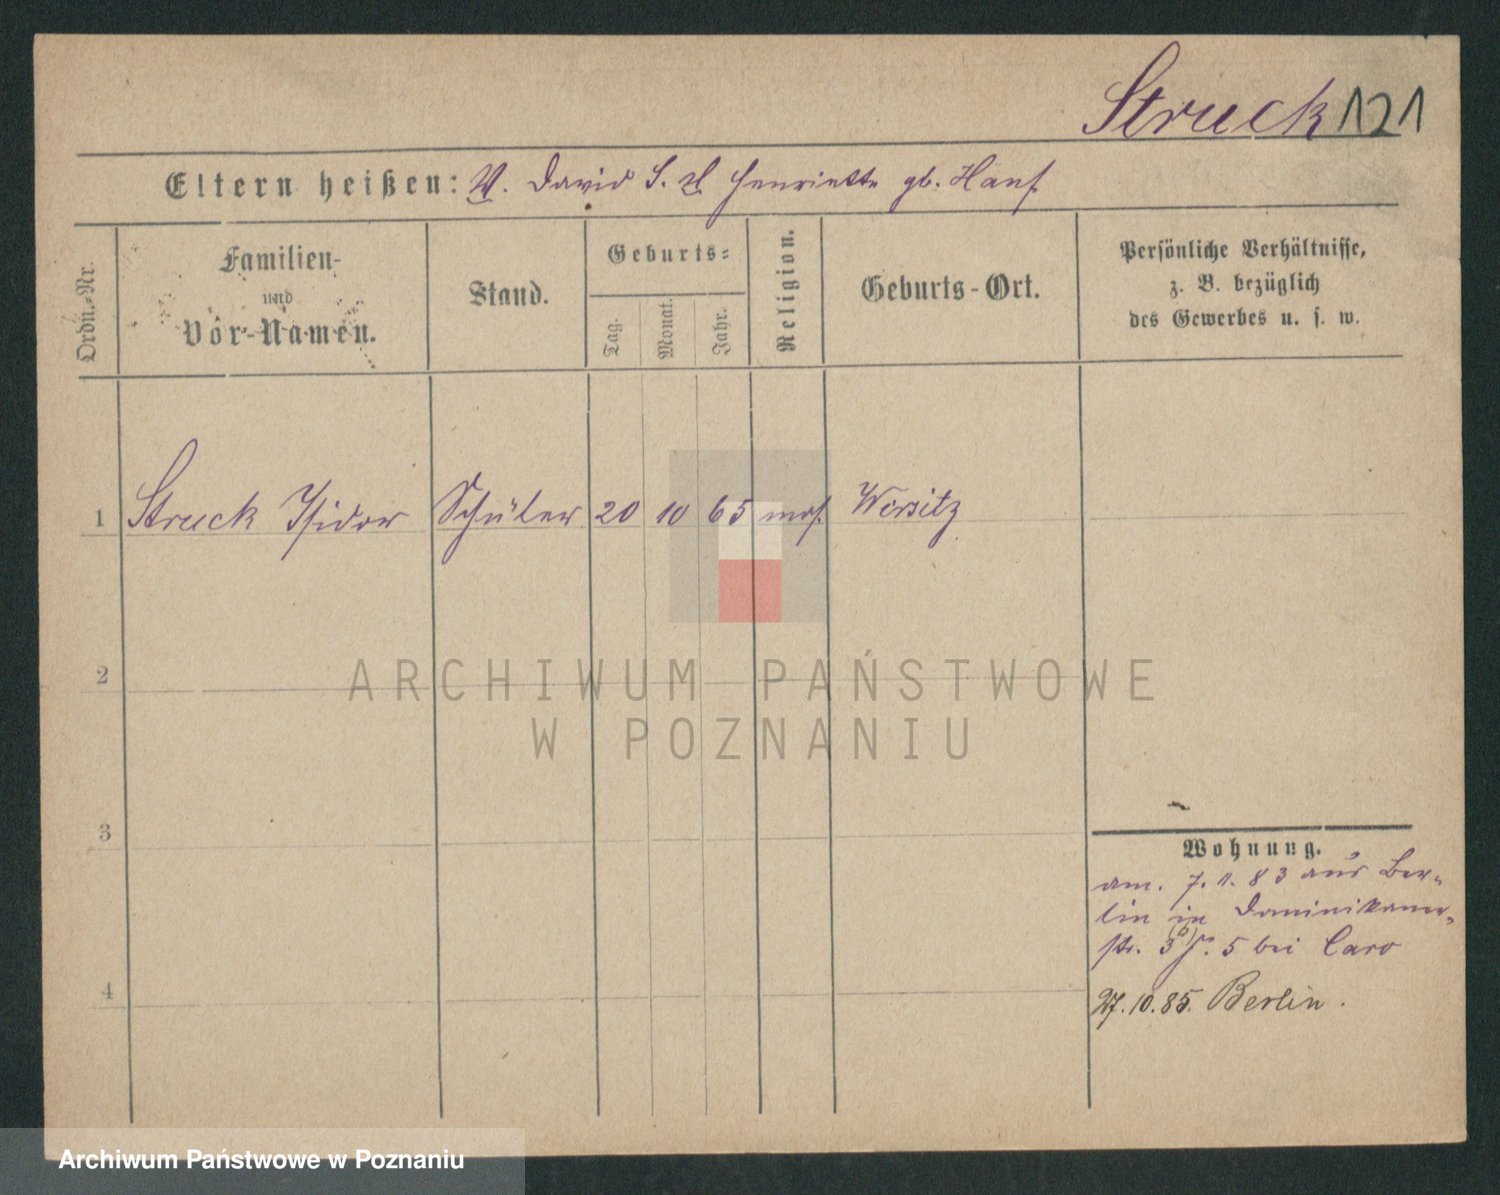 Struck 121
Eltern heißen: V. David S. M Henriette gb. Hanf
Ordn.-Nr.
Familien-
und
Vor-Namen.
Stand.
Geburts-
Tag.
Monat.
Jahr.
Religion.
Geburts-Ort.
Persönliche Verhältnisse,
z. B. bezüglich
des Gewerbes u. s. w.
1 Struck Isidor Schüler 20 10 65 mos. Wirsitz
2
ARCHIWUM PAŃSTWOWE
W POZNANIU
3
Wohnung.
am. 7. 11. 83 aus Ber-
lin in Dominikaner-
str. 3 5 bei Caro
4
27. 10. 85. Berlin.
Archiwum Państwowe w Poznaniu